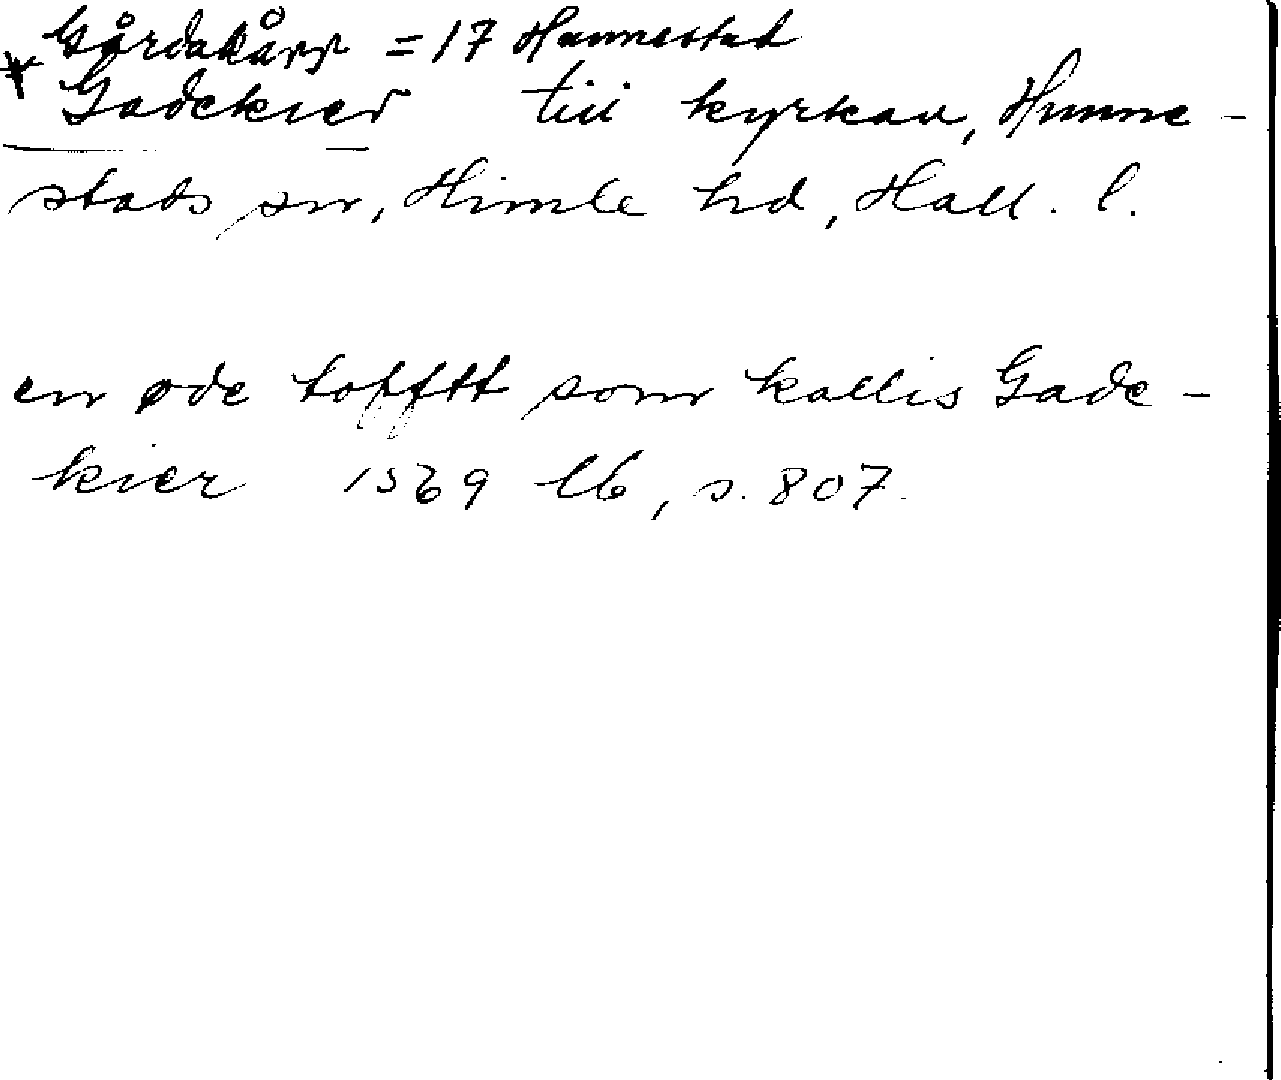 Gårdakårr = 17 Hunnestad
* Gadekier till kyrkan, Hunne-
stads sn, Himle hd, Hall. l.
en øde tofftt som kallis Gade-
kier 1569 lb, s. 807.